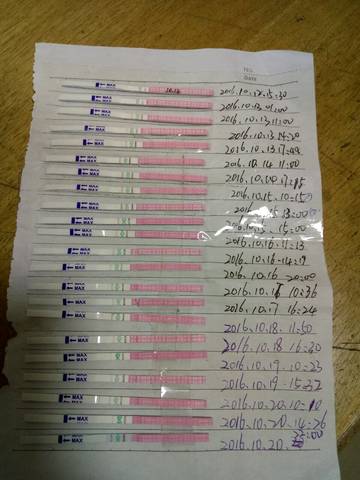 No.
Date
MAX 10.12 2016.10.12.15:30
MAX 2016.10.13 01:00
MAX 2016.10.13 11:00
MAX 2016.10.13 14:20
MAX 2016.10.13 17:03
MAX 2016.10.14 11:00
MAX
MAX 2016.10.15 10:15
MAX
MAX 15:00
MAX 2016.10.16 11:13
MAX 2016.10.16 14:17
MAX 2016.10.16 20:00
MAX 10:36
MAX 2016.10.17 16:24
MAX 2016.10.18.11:50
MAX 2016.10.18 16:30
MAX 2016.10.19 10:23
MAX 2016.10.19.15:32
MAX 2016.10.20.10:10
MAX 2016.10.20.14:26
MAX 2016.10.20. 22:00